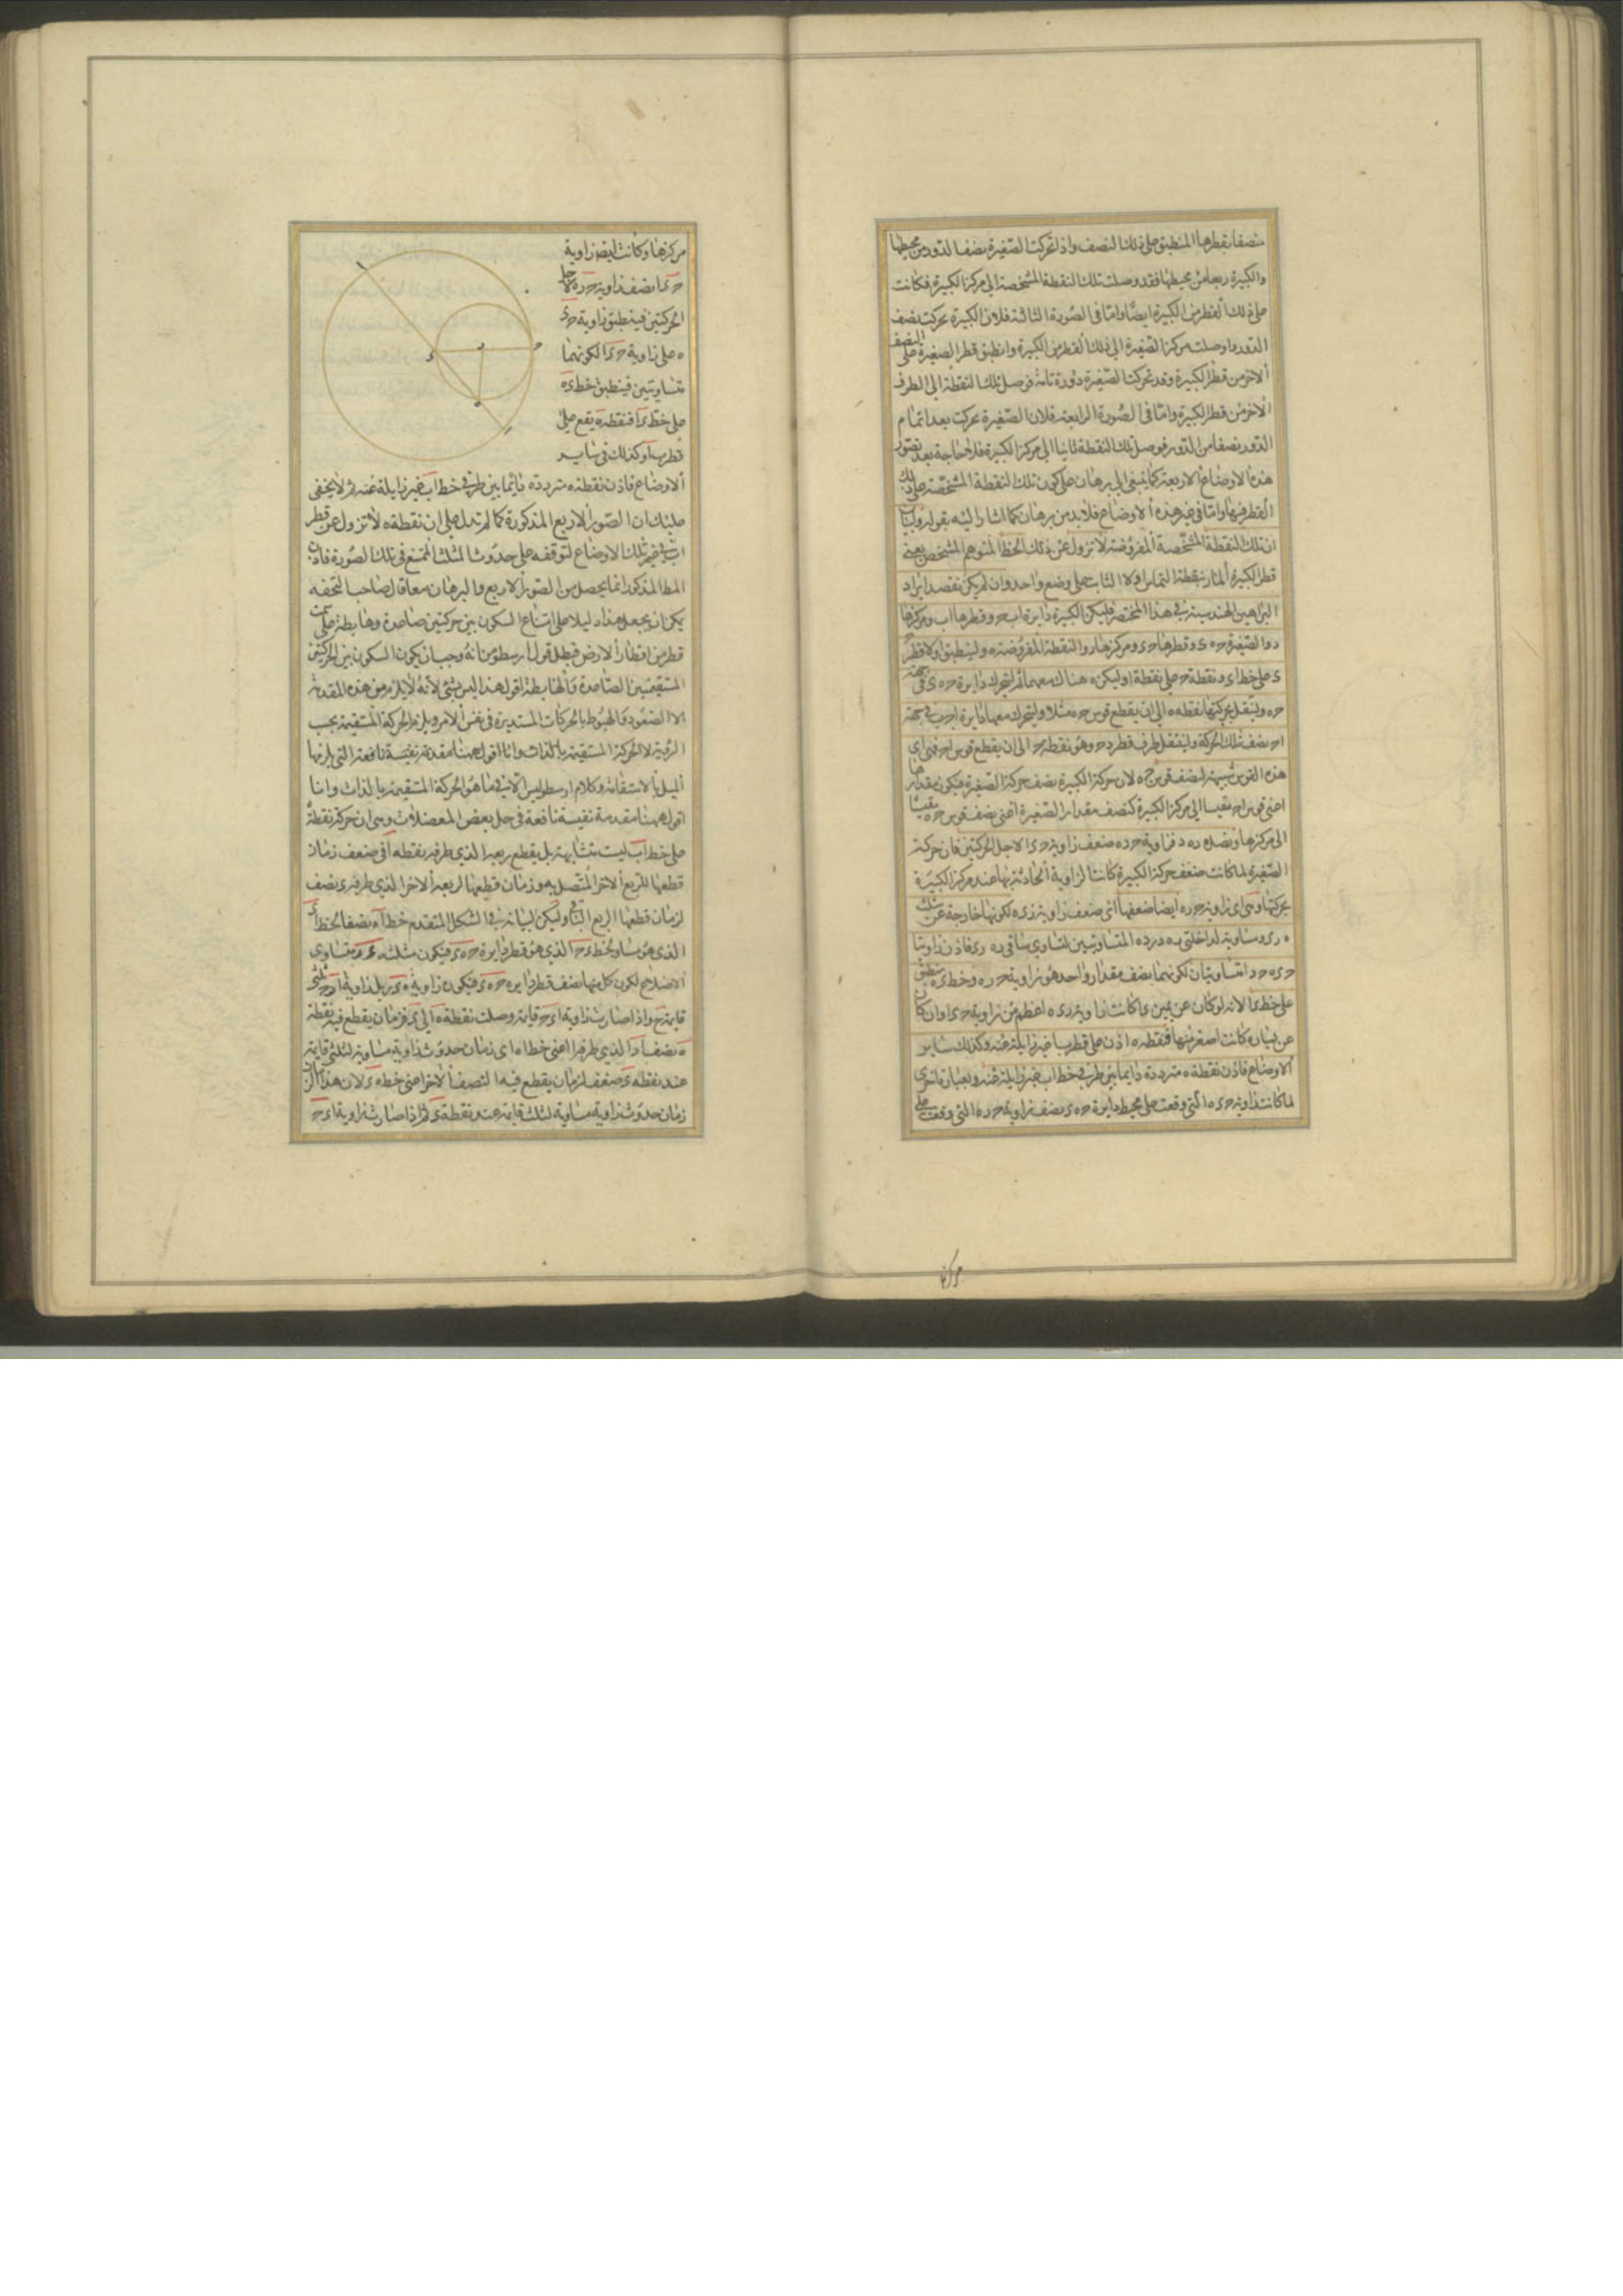 منصفا بقطرها المنطبق على ذلك النصف واذا تحركت الصغيرة نصفا لدور من محيطها
والكبيرة ربعا من محيطها فقد وصلت تلك النقطة المشخصة الى مركز الكبيرة فكانت
على ذلك القطر من الكبيرة ايضا واما فى الصورة الثالثة فلان الكبيرة تحركت نصف
الدور وصلت مركز الصغيرة الى ذلك القطر من الكبيرة وانطبق قطر الصغيرة على النصف
الاخر من قطر الكبيرة وقد تحركت الصغيرة دورة تامة فوصل تلك النقطة الى الطرف
الاخر من قطر الكبيرة واما فى الصورة الرابعة فلان الصغيرة تحركت بعد اتمام
الدور نصفا من الدور فوصل تلك النقطة ثانيا الى مركز الكبيرة فلا حاجة بعد تصور
هذه الاوضاع الاربعة كما ينبغى الى برهان على كون تلك النقطة المشخصة على ذلك
القطر فيها واما فى غير هذه الاوضاع فلابد من برهان كما اشار اليه بقوله وليبان
ان تلك النقطة المشخصة المفروضة لا تزول عن ذلك الخط المتوهم المشخص يعنى
قطر الكبيرة المار بنقطة التماس اولا الثابت على وضع واحد وان لم يكن نقصد ايراد
البراهين الهندسية فى هذا المختصر فليكن الكبيرة دايرة اب ح وقطرها اب ومركزها
د والصغيرة ح ه ى وقطرها ح ى ومركزها ر والنقطة المفروضة ه ولينطبق اولا قطر ح
ى على خط اى ونقطة ح على نقطة ا وليكن ه هناك معهما ثم لتتحرك دايرة ح ه ى فى جهة
ح ه ولينقل بحركتها نقطة ه الى ان يقطع قوس ح ه مثلا وليتحرك معها دايرة ا ح ب فى جهة
ا ح نصف تلك الحركة ولينتقل طرف قطر د ح وهو نقطة ح الى ان يقطع قوس ا ح فى اى
هذه القوس شبيهة لنصف قوس ح ه لان حركة الكبيرة نصف حركة الصغيرة فيكون مقدارها
اعنى قوس ا ح مقيسا الى مركز الكبيرة كنصف مقدار الصغيرة اعنى نصف قوس ح ه مقيسا
الى مركزها ونصل ره د فزاوية ح ر ه ضعف زاوية ح ى ا لاجل الحركتين فان حركة
الصغيرة لما كانت ضعف حركة الكبيرة كانت الزاوية الحادثة بها عند مركز الكبيرة
بحركتها وهى اى زاوية ح ر ه ايضا ضعفها اى ضعف زاوية ر ى ه لكونها خارجة عن مثلث
ه ر ى ومساوية لداخلتى ر ه د ر د ه المتساويتين لتساوى ساقى ر ه ر ى فاذن زاويتا
ح ى ه ح د ا متساويتان لكونهما نصف مقدار واحد هو زاوية ح ر ه وخط ى ه منطبق
على خط ى ا لانه لو كان عن يمين ى ا كانت زاوية ر ى ه اعظم من زاوية ح ى ا وان كان
عن يساره كانت اصغر منها فنقطة ه اذن على قطر ب ا غير زايلة عنه وكذلك ساير
الاوضاع فاذن نقطة ه مترددة دايما بين طرفى خط اب غير زايلة عنه وبعبارة اخرى
لما كانت زاوية ح ى ه التى وقعت على محيط دايرة ح ه ى نصف زاوية ح ر ه التى وقعت على
مركزها
مركزها وكانت ايضا زاوية
ح ى ا نصف زاوية ح ر ه لاجل
الحركتين فينطبق زاوية ح ى
ه على زاوية ح ى ا لكونهما
متساويتين فينطبق خط ى ه
على خط ى ا فنقطة ه يقع على
قطر ب ا وكذلك فى ساير
الاوضاع فاذن نقطة ه مترددة دايما بين طرفى خط اب غير زايلة عنه ثم لا يخفى
عليك ان الصور الاربع المذكورة كما لم تدل على ان نقطة ه لا تزول عن قطر
اب فى غير تلك الاوضاع لتوقفه على حدوث المثلث الممتنع فى تلك الصورة فاذن
المط المذكور انما يحصل من الصور الاربع والبرهان معا قال صاحب التحفه
يمكن ان يجعل هذا دليلا على امتناع السكون بين حركتين صاعدة وهابطة على سمت
قطر من اقطار الارض فبطل قول ارسطو من انه وجب ان يكون السكون بين الحركتين
المستقيمتين الصاعدة والهابطة اقول هذا ليس بشئ لانه لا يلزم من هذه المقدمة
الا الصعود والهبوط بالحركات المستديرة فى نفس الامر ويلزم الحركة المستقيمة بحسب
الرؤية لا الحركة المستقيمة بالذات وانا اقول ههنا مقدمة نفيسة نافعة التى يلزمها
الميل بالاستقامة وكلام ارسطو ليس الا فى ما هو الحركة المستقيمة بالذات وانا
اقول ههنا مقدمة نفيسة نافعة فى حل بعض المعضلات وهى ان حركة نقطة ه
على خط اب ليست متشابهة بل يقطع ربعه الذى طرفه نقطة ا فى ضعف زمان
قطعها للربع الاخر المتصل به وزمان قطعها لربعه الاخر الذى طرفه ى نصف
لزمان قطعها الربع الثانى وليكن لبيانه فى الشكل المتقدم خط ا ه نصفا لخط اى
الذى هو مساو لخط ى ح الذى هو قطر دايرة ح ه ى فيكون مثلث ه ى ر متساوى
الاضلاع لكون كل منها نصف قطر دايره ح ه ى فيكون زاوية ه ى ر بل زاوية ا ى ح ثلثى
قايمة ح واذا صارت زاوية ا ى ح قايمة وصلت نقطة ه الى ى فزمان يقطع فيه نقطة
ه نصف ا د الذى طرفه ا اعنى خط ا ه اى زمان حدوث زاوية مساوية لثلثى قايمة
عند نقطه ى ضعف لزمان يقطع فيه النصف الاخر اعنى خط ه ى لان هذا الزمان
زمان حدوث زاوية مساوية لثلث قايمة عند نقطة ى ثم اذا صارت زاوية ا ى ح